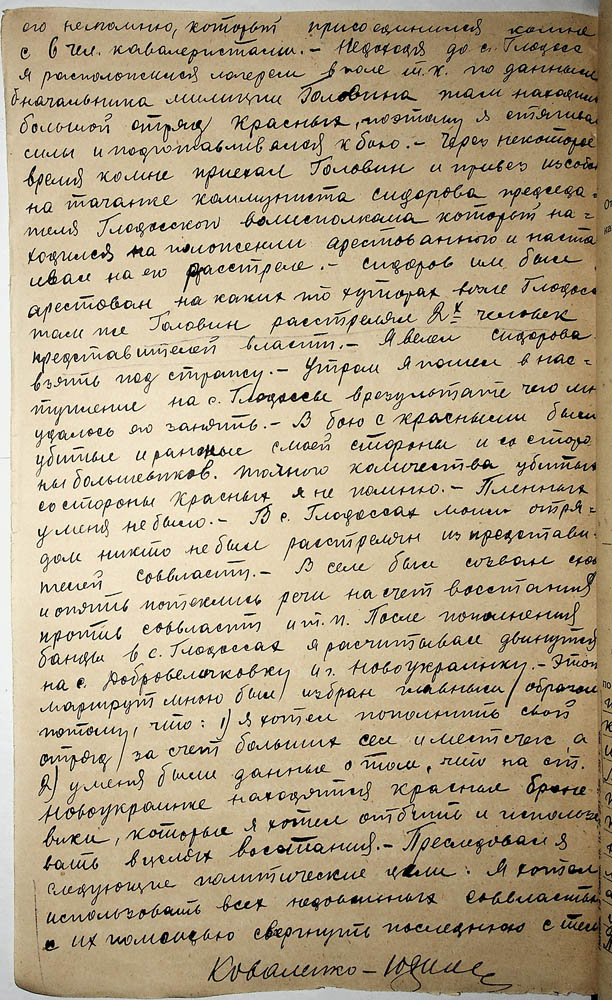 его непомню, который присоединился комне
с 6 чел. кавалеристами. – Недоходя до с. Глодоса
я расположился лагерем в поле т.к. по данным
б начальника милиции Головина там находил
большой отряд красных, поэтому я стягивал
силы и подготавливался к бою. – Через некоторое
время комне приехал Головин и привез изсобой
на тачанке коммуниста сидорова председа-
теля Глодосского волисполкома который на-
ходился на положении арестованного и наста
ивал на его расстреле. – Сидоров им был
арестован на каких то хуторах возле Глодосс
там же Головин расстрелял 2х человек
представителей власти. – Я велел сидорова
взять под стражу. – Утром я пошел в нас-
тупление на с. Глодоссы врезультате чего мн
удалось его занять. – В бою с красными были
убитые и раненые с моей стороны и со сторо
ны большевиков. точного количества убитых
со стороны красных я не помню. – Пленных
у меня не было. – В с. Глодоссах моим отря-
дом никто не был расстрелян из представи-
телей соввласти. – В селе был созван сход
и опять потеклись речи на счет восстания
против соввласти и т.п. После пополнения
банды в с. Глодоссах я расчитывал двинутся
на с. Добровеличковку и г. Новоукраинку. – Этот
маршрут мною был избран главным образом
потому, что: 1) я хотел пополнить свой
отряд за счет больших сел и местечек, а
2) у меня были данные о том, что на ст.
Новоукраинке находятся красные броне
вики, которые я хотел отбить и использо
вать в целях восстания. – Преследовал я
следующие политические цели: Я хотел
использовать всех недовольных соввластью
с их помощью свергнуть последнюю с тем
Коваленко –